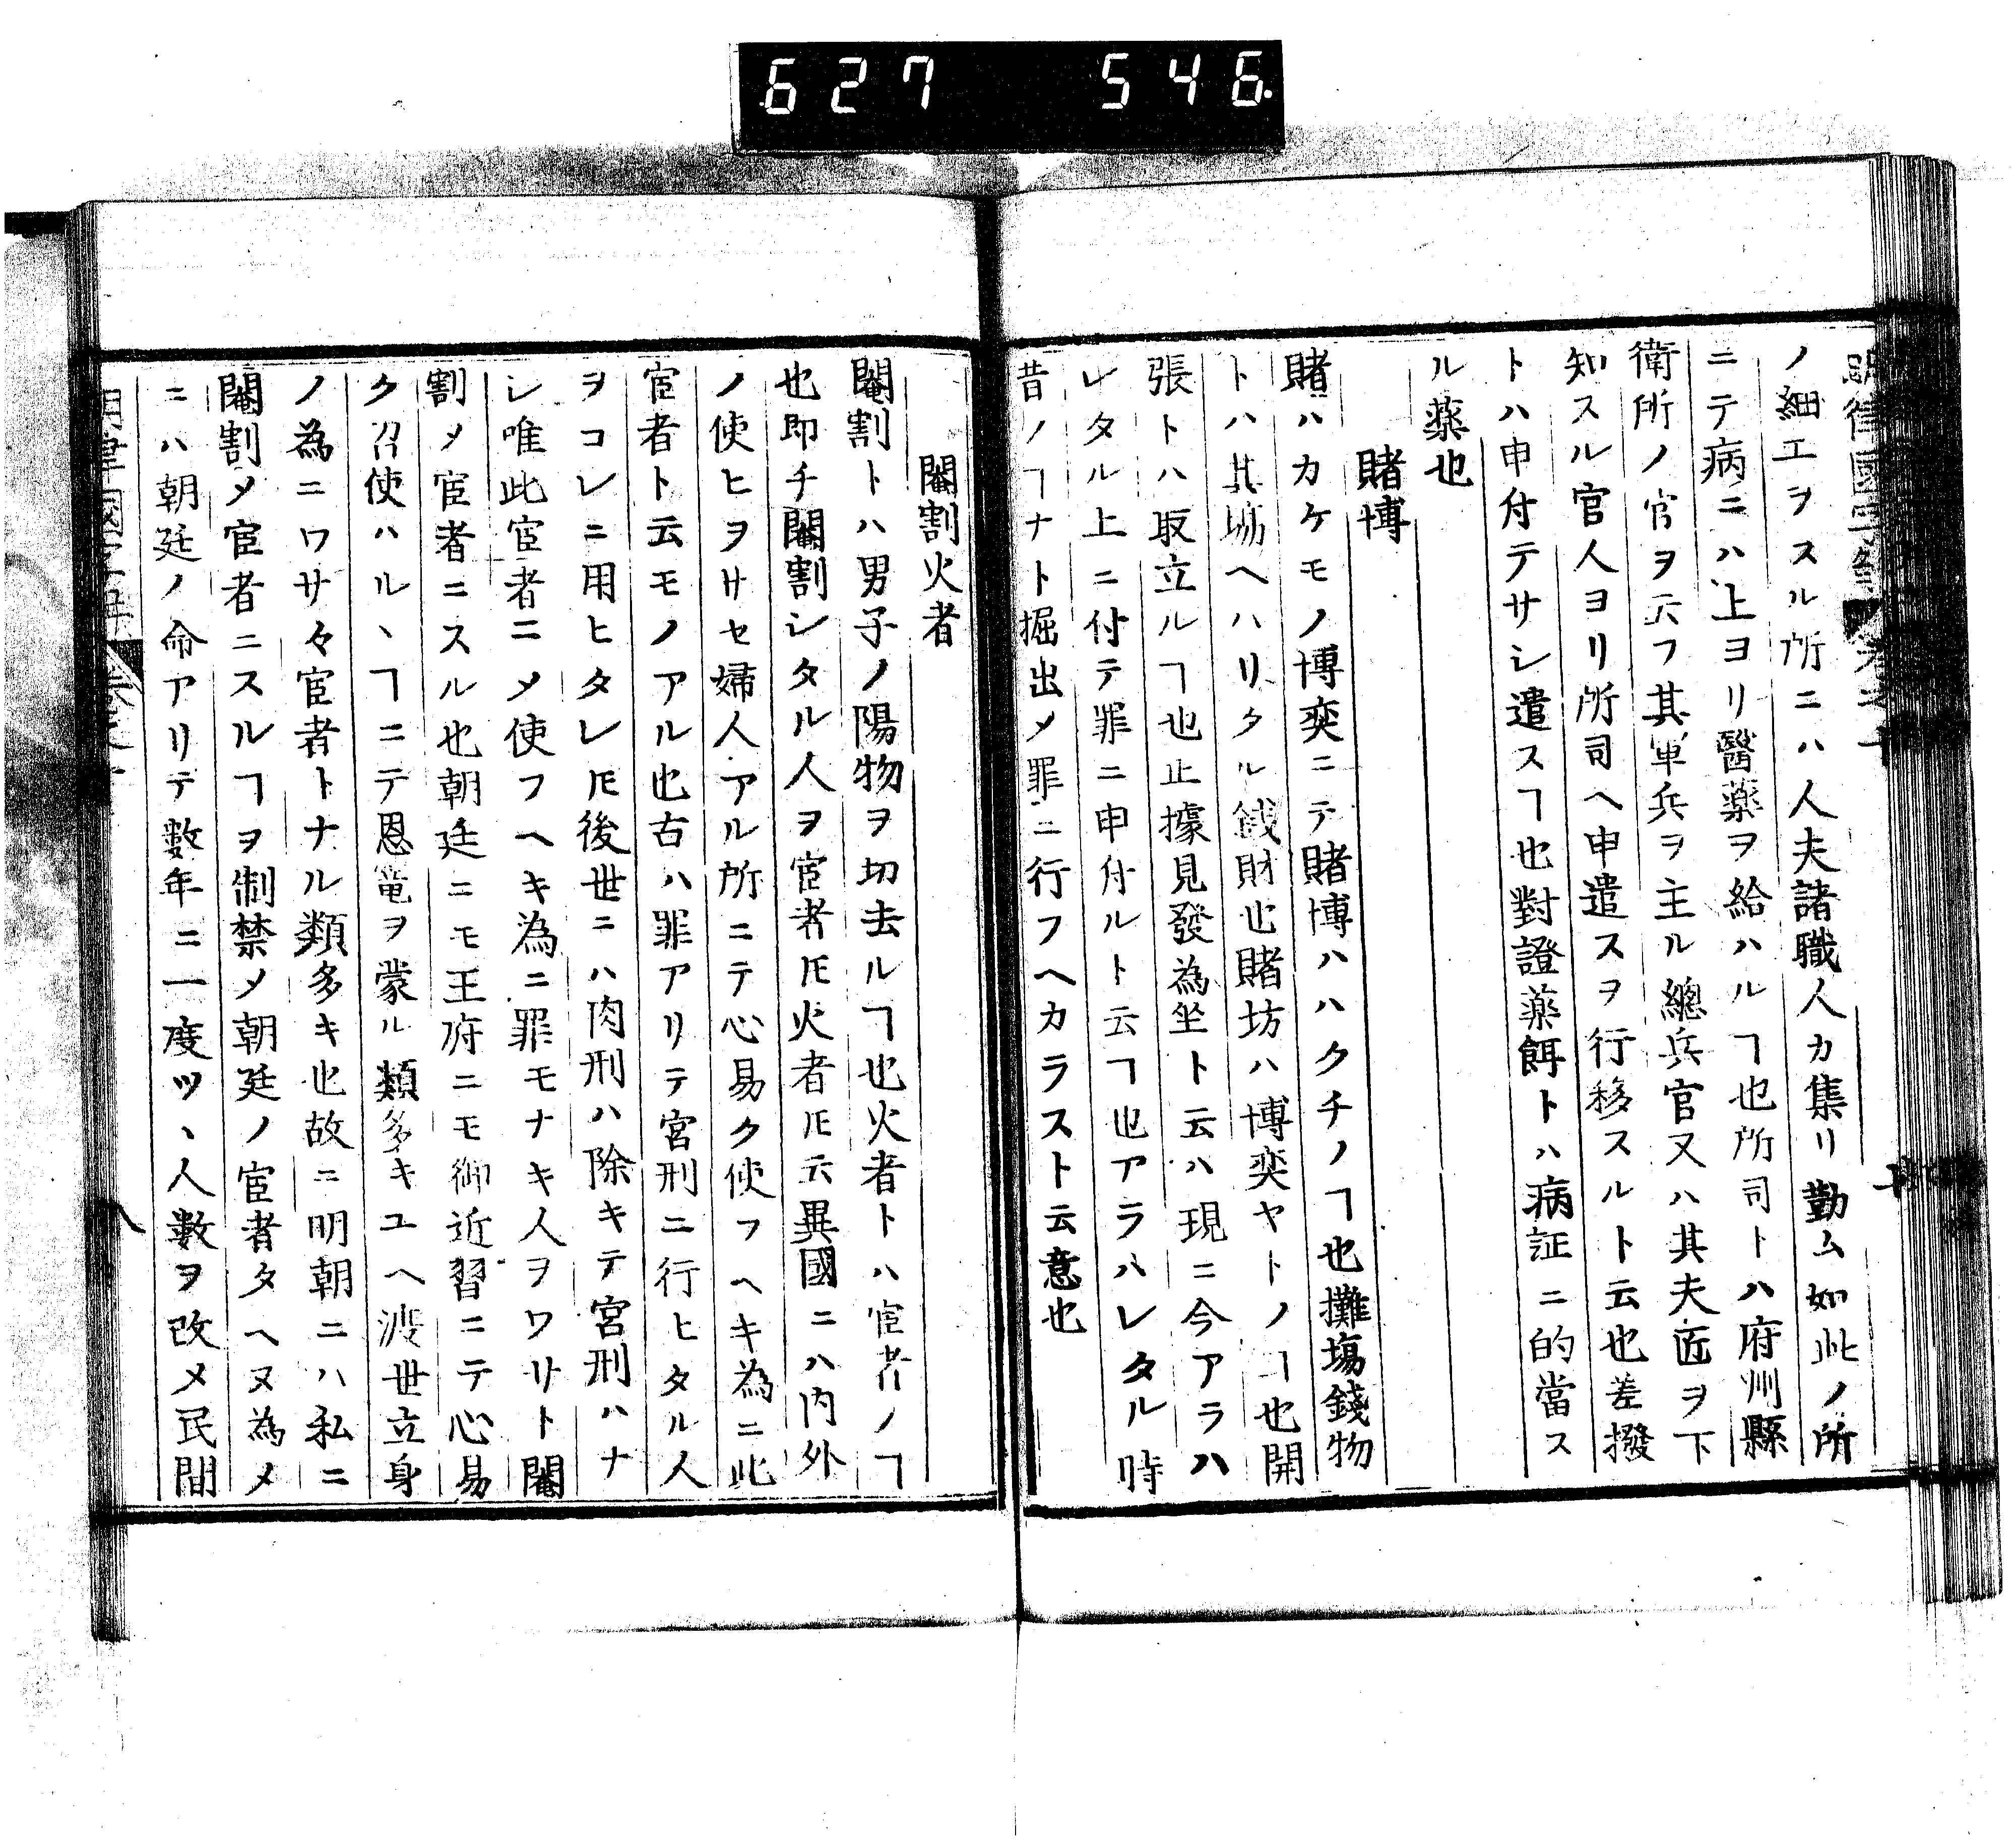 627 546
ノ細工ヲスル所ニハ人夫諸職人カ集リ勤ム如此ノ所
ニテ病ニハ上ヨリ醫薬ヲ給ハルヿ也所司トハ府州縣
衛所ノ官ヲ云フ其軍兵ヲ主ル總兵官又ハ其夫匠ヲ下
知スル官人ヨリ所司ヘ申遣スヲ行移スルト云也差撥
トハ申付テサシ遣スヿ也對證薬餌トハ病証ニ的當ス
ル薬也
賭博
賭ハカケモノ博奕ニテ賭博ハハクチノヿ也攤塲錢物
トハ其塲ヘハリタル錢財也賭坊ハ博奕ヤトノヿ也開
張トハ取立ルヿ也止據見發為坐ト云ハ現ニ今アラハ
レタル上ニ付テ罪ニ申付ルト云ヿ也アラハレタル時
昔ノヿナト掘出メ罪ニ行フヘカラスト云意也
閹割火者
閹割トハ男子ノ陽物ヲ切去ルヿ也火者トハ宦者ノヿ
也即チ閹割シタル人ヲ宦者𪜈火者𪜈云異國ニハ内外
ノ使ヒヲサセ婦人アル所ニテ心易ク使フヘキ為ニ此
宦者ト云モノアル也古ハ罪アリテ宮刑ニ行ヒタル人
ヲコレニ用ヒタレ𪜈後世ニハ肉刑ハ除キテ宮刑ハナ
シ唯此宦者ニメ使フヘキ為ニ罪モナキ人ヲワサト閹
割メ宦者ニスル也朝廷ニモ王府ニモ御近習ニテ心易
ク召使ハルヽヿニテ恩寵ヲ蒙ル類多キユヘ渡世立身
ノ為ニワサ々宦者トナル類多キ也故ニ明朝ニハ私ニ
閹割メ宦者ニスルヿヲ制禁メ朝廷ノ宦者タヘヌ為メ
ニハ朝廷ノ命アリテ數年ニ一度ツヽ人數ヲ改メ民間
八